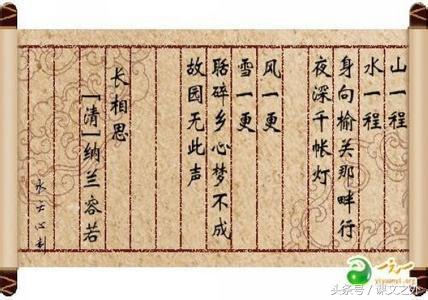 山一程
水一程
身向榆关那畔行
夜深千帐灯
风一更
雪一更
聒碎乡心梦不成
故园无此声
长相思
[清]纳兰容若
头条号/课文之外